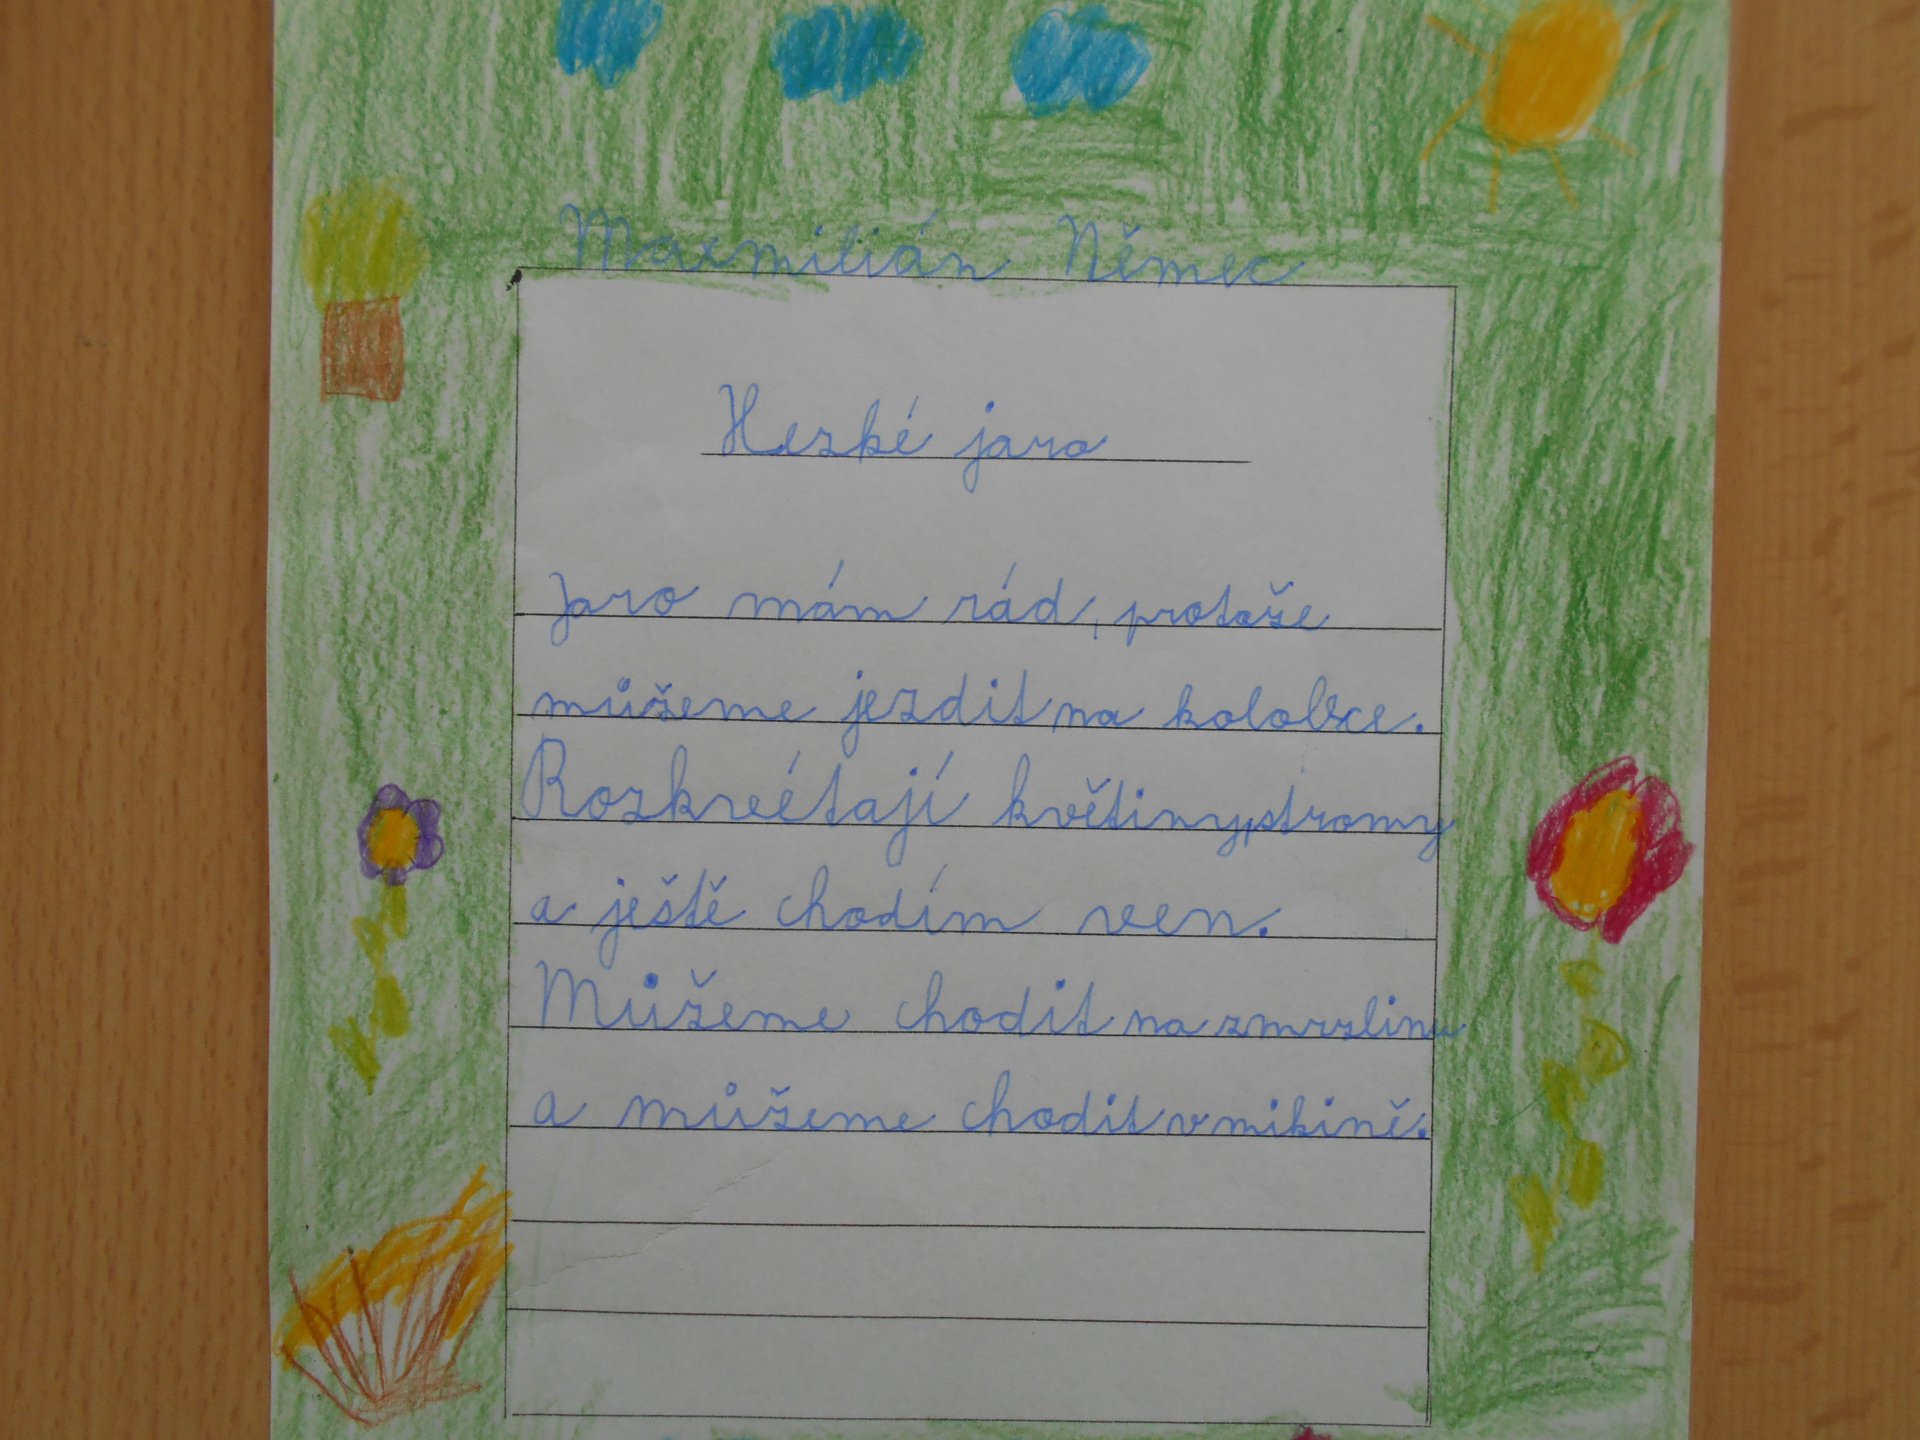 Maxmilián Němec
Hezké jaro
Jaro mám rád, protože
můžeme jezdit na kolobce.
Rozkvétají květiny, stromy
a ještě chodím ven.
Můžeme chodit na zmrzlinu
a můžeme chodit v mikině.